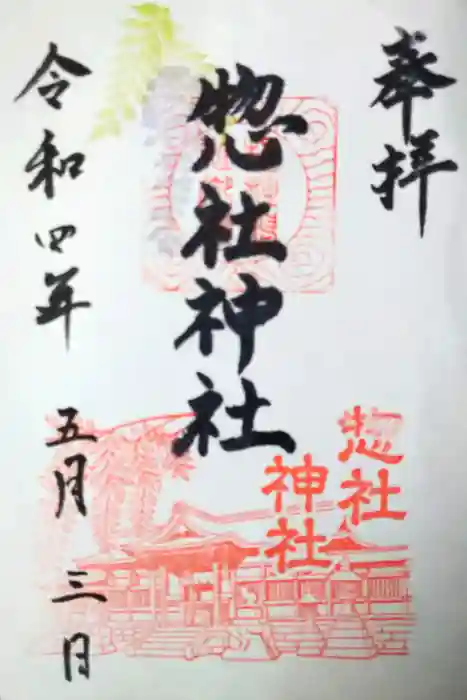 奉拝
惣社神社
惣社
神社
令和四年
五月三日